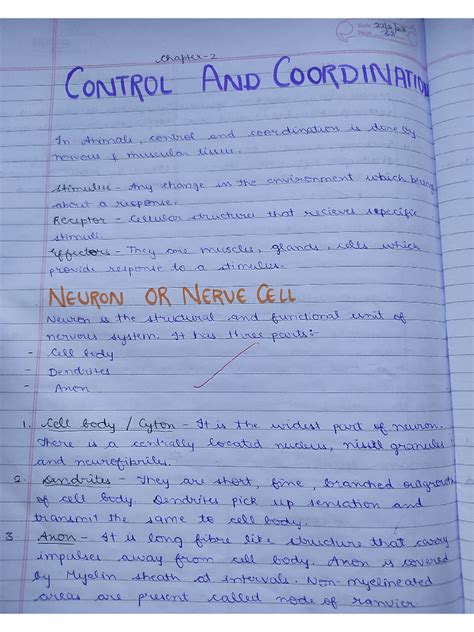 Date 22/2/23
Page 33
Chapter-2
CONTROL AND COORDINATION
In Animals, control and coordination is done by
nervous & muscular tissues.
Stimulus - Any change in the environment which brings
about a response.
Receptor - Cellular structures that recieves specific
stimuli.
Effectors - They are muscles, glands, cells which
provide response to a stimulus.
NEURON OR NERVE CELL
Neuron is the structural and functional unit of
nervous system. It has three parts:-
- Cell body
- Dendrites
- Axon
1. Cell body / Cyton - It is the widest part of neuron.
There is a centrally located nucleus, nissll granules
and neurofibriles.
2. Dendrites - They are short, fine, branched outgrowth
of cell body. Dendrites pick up sensation and
transmit the same to cell body.
3. Axon - It is long fibre like structure that carry
impulses away from cell body. Axon is covered
by Myelin sheath at intervals. Non-myelineated
areas are present called node of ranvier